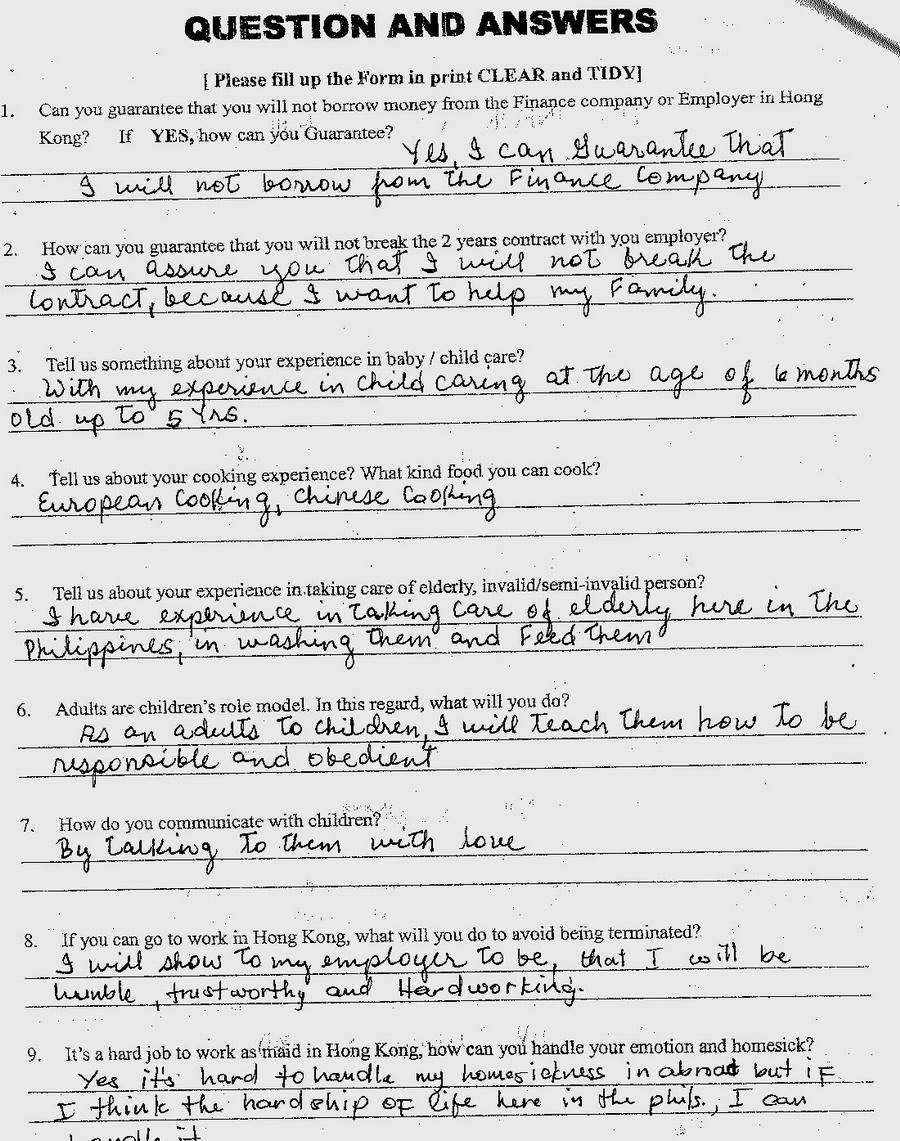 QUESTION AND ANSWERS
[ Please fill up the Form in print CLEAR and TIDY]
1. Can you guarantee that you will not borrow money from the Finance company or Employer in Hong
Kong? If YES, how can you Guarantee?
Yes, I can Guarantee that
I will not borrow from the Finance Company
2. How can you guarantee that you will not break the 2 years contract with you employer?
I can assure you that I will not break the
contract, because I want to help my Family.
3. Tell us something about your experience in baby / child care?
With my experience in child caring at the age of 6 months
old up to 5 yrs.
4. Tell us about your cooking experience? What kind food you can cook?
European Cooking, Chinese Cooking
5. Tell us about your experience in taking care of elderly, invalid/semi-invalid person?
I have experience in taking care of elderly here in the
Philippines, in washing them and Feed them
6. Adults are children's role model. In this regard, what will you do?
As an adults to children, I will teach them how to be
responsible and obedient
7. How do you communicate with children?
By talking to them with love
8. If you can go to work in Hong Kong, what will you do to avoid being terminated?
I will show to my employer to be, that I will be
humble, trustworthy and Hardworking.
9. It's a hard job to work as maid in Hong Kong, how can you handle your emotion and homesick?
Yes it's hard to handle my homesickness in abroad but if
I think the hardship of life here in the phils., I can
handle it